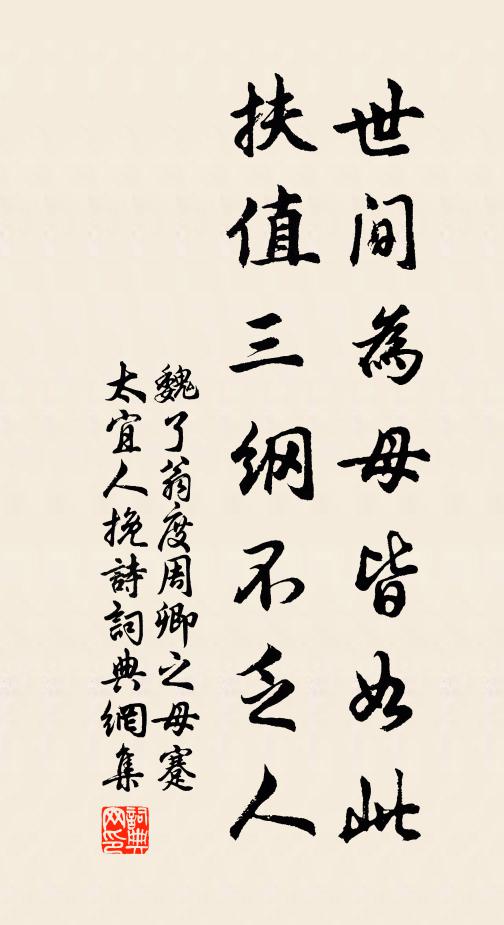 世间為母皆如此
扶值三纲不乏人
魏了翁度周卿之母蹇
太宜人挽詩詞典網集
詞典網印